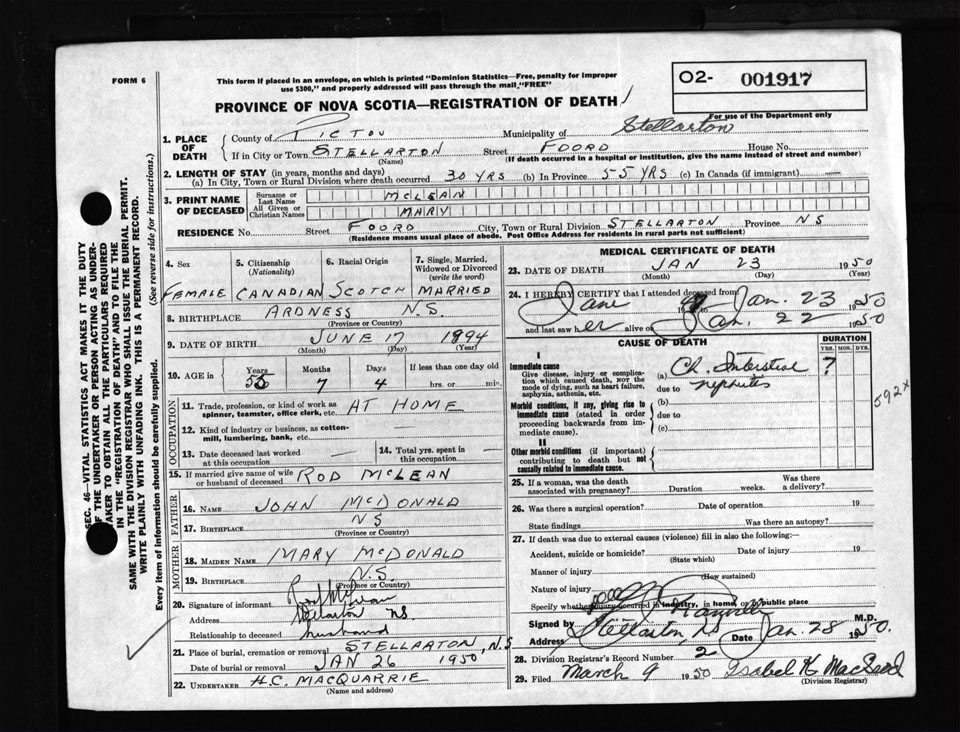 FORM 6
This form if placed in an envelope, on which is printed "Dominion Statistics—Free, penalty for improper
use $300," and properly addressed will pass through the mail, "FREE"
O2- 001917
For use of the Department only
PROVINCE OF NOVA SCOTIA—REGISTRATION OF DEATH
1. PLACE OF DEATH
County of PICTOU Municipality of Stellarton
If in City or Town STELLARTON Street FOORD House No.
(Name) (If death occurred in a hospital or institution, give the name instead of street and number)
2. LENGTH OF STAY (in years, months and days)
(a) In City, Town or Rural Division where death occurred 30 YRS (b) In Province 55 YRS (c) In Canada (if immigrant)
3. PRINT NAME OF DECEASED
Surname or Last Name MCLEAN
All Given or Christian Names MARY
RESIDENCE No. Street FOORD City, Town or Rural Division STELLARTON Province NS
(Residence means usual place of abode. Post Office Address for residents in rural parts not sufficient)
4. Sex 5. Citizenship (Nationality) 6. Racial Origin 7. Single, Married, Widowed or Divorced (write the word)
FEMALE CANADIAN SCOTCH MARRIED
8. BIRTHPLACE ARDNESS N.S.
(Province or Country)
9. DATE OF BIRTH JUNE 17 1894
(Month) (Day) (Year)
10. AGE in Years Months Days If less than one day old
7 4 hrs. or min.
OCCUPATION
11. Trade, profession, or kind of work as spinner, teamster, office clerk, etc. AT HOME
12. Kind of industry or business, as cotton-mill, lumbering, bank, etc.
13. Date deceased last worked at this occupation
14. Total yrs. spent in this occupation
15. If married give name of wife or husband of deceased ROD MCLEAN
FATHER
16. NAME JOHN MCDONALD
17. BIRTHPLACE NS
(Province or Country)
MOTHER
18. MAIDEN NAME MARY MCDONALD
19. BIRTHPLACE N.S.
(Province or Country)
20. Signature of informant Rod McLean
Address Stellarton NS.
Relationship to deceased husband
21. Place of burial, cremation or removal STELLARTON, N.S
Date of burial or removal JAN 26 1950
22. UNDERTAKER H.C. MACQUARRIE
(Name and address)
MEDICAL CERTIFICATE OF DEATH
23. DATE OF DEATH JAN 23 1950
(Month) (Day) (Year)
24. I HEREBY CERTIFY that I attended deceased from
June 19 Jan. 23 1950
and last saw her alive on Jan. 22 1950
CAUSE OF DEATH
DURATION
YRS. MOS. DYS.
I
Immediate cause
Give disease, injury or complication which caused death, NOT the mode of dying, such as heart failure, asphyxia, asthenia, etc.
(a) Ch. Interstitial ?
due to nephritis
592x
Morbid conditions, if any, giving rise to immediate cause (stated in order proceeding backwards from immediate cause).
(b)
due to
(c)
II
Other morbid conditions (if important) contributing to death but not causally related to immediate cause.
25. If a woman, was the death associated with pregnancy? Duration weeks. Was there a delivery?
26. Was there a surgical operation? Date of operation 19
State findings Was there an autopsy?
27. If death was due to external causes (violence) fill in also the following:—
Accident, suicide or homicide? Date of injury 19
(State which)
Manner of injury
(How sustained)
Nature of injury
Specify whether injury occurred in industry, in home, or public place
Signed by M.D.
Address Stellarton, NS Date Jan. 28 1950.
28. Division Registrar's Record Number 2
29. Filed March 9 1950 Isabel K MacLeod
(Division Registrar)
SEC. 46—VITAL STATISTICS ACT MAKES IT THE DUTY
OF THE UNDERTAKER OR PERSON ACTING AS UNDER-
TAKER TO OBTAIN ALL THE PARTICULARS REQUIRED
IN THE "REGISTRATION OF DEATH" AND TO FILE THE
SAME WITH THE DIVISION REGISTRAR WHO SHALL ISSUE THE BURIAL PERMIT.
WRITE PLAINLY WITH UNFADING INK. THIS IS A PERMANENT RECORD.
Every item of information should be carefully supplied. (See reverse side for instructions.)